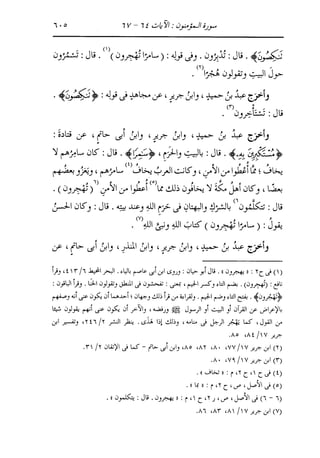 سورة المؤمنون : الآيات ٦٤ - ٦٧ ٦٠٥
تَنكِصُونَ﴾ . قال : تُدْبِرُون . وفى قوله : ( سامِرًا تُهْجِرون )(١) . قال : تَسْمُرُون
حولَ البيتِ وتقولون هُجْرًا(٢) .
وأخرَج عبدُ بنُ حميدٍ ، وابنُ جريرٍ ، عن مجاهدٍ فى قوله : ﴿تَنكِصُونَ﴾ .
قال : تَسْتَأْخِرون(٣) .
وأخرَج عبدُ بنُ حميدٍ ، وابنُ جريرٍ ، وابنُ أبى حاتمٍ ، عن قتادةَ :
﴿مُسْتَكْبِرِينَ بِهِ﴾ . قال : بالبيتِ والحَرَمِ ، ﴿سَٰمِرًا﴾ . قال : كان سامِرُهم لا
يخافُ ؛ ممَّا أُعطُوا من الأمنِ ، وكانت العربُ يخافُ(٤) سامرُهم ، ويَغْزُو بعضُهم
بعضًا ، وكان أهلُ مكَّةَ لا يخافُون ذلك مما(٥) أُعطُوا من الأمنِ (٦) ( تُهْجِرون ) .
قال : تَتكلَّمون(٦) بالشركِ والبهتانِ فى حَرَمِ اللهِ وعندَ بيتِه . قال : وكان الحسنُ
يقولُ : ( سامِرًا تُهْجِرون ) كتابَ اللهِ ونبىَّ اللهِ(٧) .
وأخرَج عبدُ بنُ حميدٍ ، وابنُ جريرٍ ، وابنُ المنذرِ ، وابنُ أبى حاتمٍ ، عن
(١) فى ح٢ : « يهجرون » . قال أبو حيان : وروى ابن أبى عاصم بالياء . البحر المحيط ٤١٣/٦ ، وقرأ
نافع : (تُهجِرون) . بضم التاء وكسر الجيم ، بمعنى : تفحشون فى المنطق وتقولون الخنا . وقرأ الباقون :
﴿تَهْجُرُونَ﴾ . بفتح التاء وضم الجيم . ولقراءة من قرأ ذلك وجهان ؛ أحدهما أن يكون عنى أنه وصفهم
بالإعراض عن القرآن أو البيت أو الرسول ﷺ ورفضه ، والآخر أن يكون عنى أنهم يقولون شيئا
من القول ، كما يَهْجُر الرجل فى منامه ، وذلك إذا هَذَى . ينظر النشر ٢٤٦/٢ ، وتفسير ابن
جرير ٨٤/١٧ ، ٨٥ .
(٢) ابن جرير ٧٧/١٧ ، ٨٠ ، ٨٢ ، ٨٥ ، وابن أبى حاتم - كما فى الإتقان ٣١/٢ .
(٣) ابن جرير ٧٩/١٧ ، ٨٠ .
(٤) فى ح ١ ، ح ٢ ، م : « تخاف » .
(٥) فى الأصل ، ص ، ح ٢ ، م : « بما » .
(٦ - ٦) فى الأصل ، ص ، ر ٢ ، ح ١ ، م : « يهجرون . قال : يتكلمون » .
(٧) ابن جرير ٨١/١٧ ، ٨٣ ، ٨٦ .